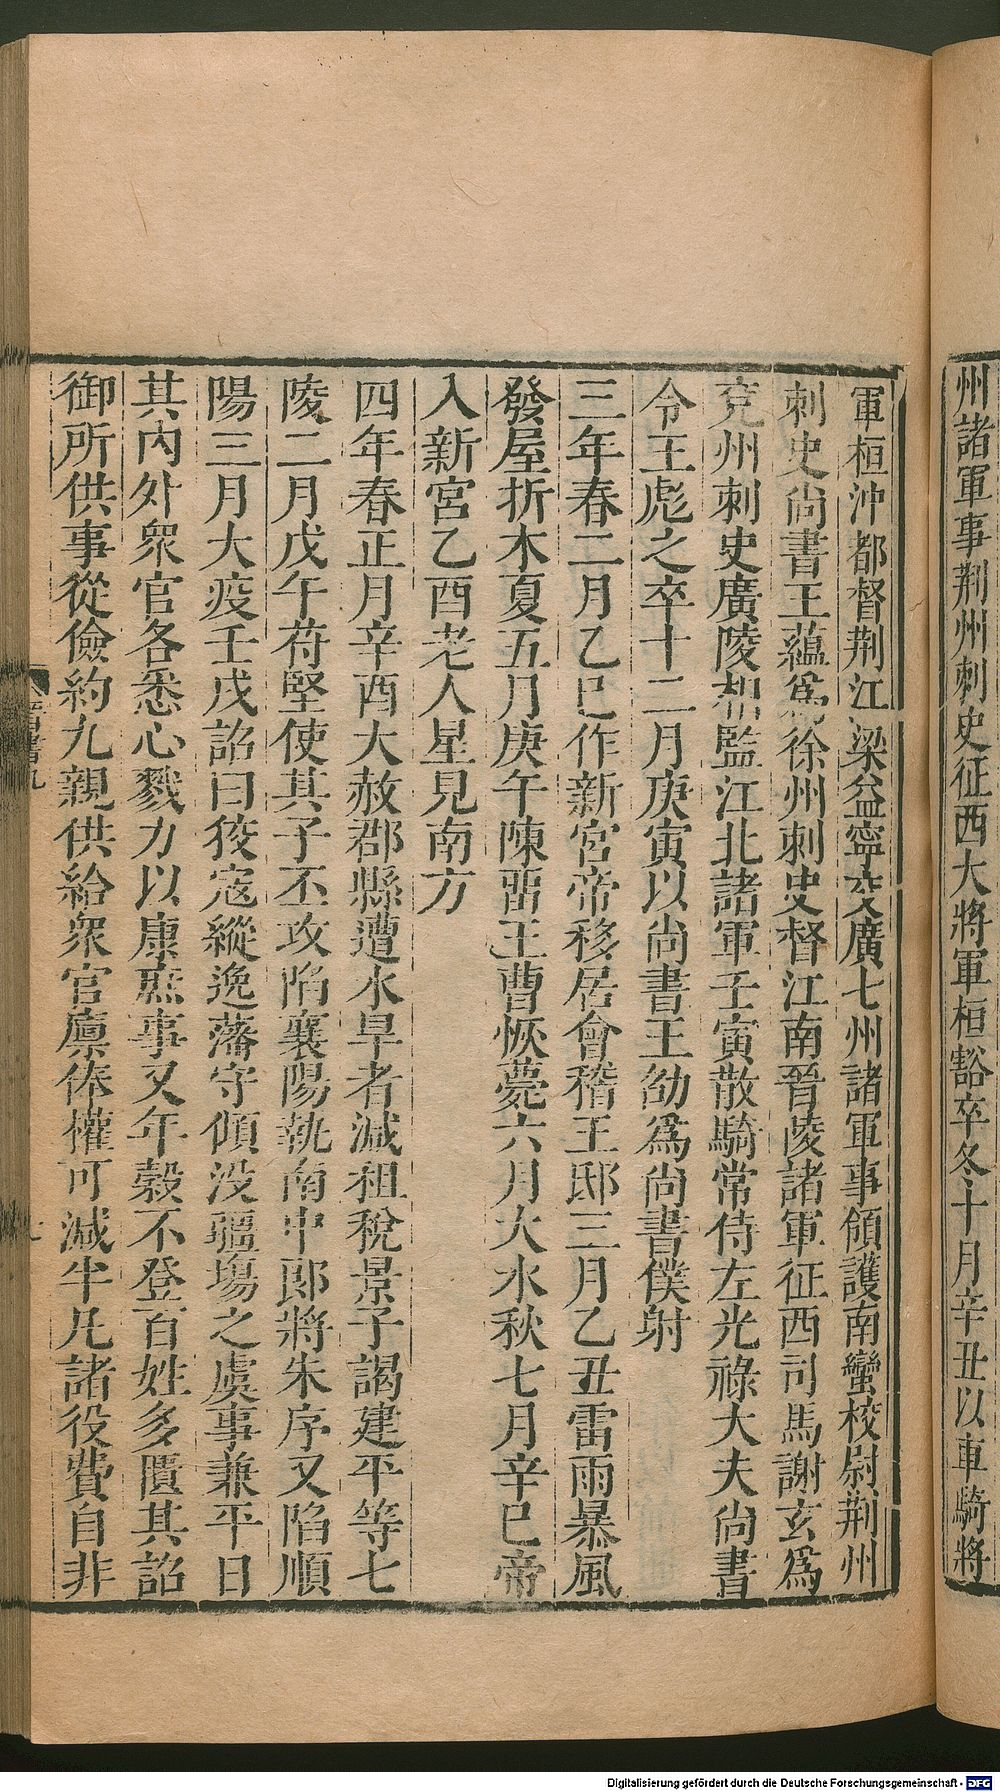 州諸軍事荆州刺史征西大將軍桓豁卒冬十月辛丑以車騎將
軍桓沖都督荆江梁益寧交廣七州諸軍事領護南蠻校尉荆州
刺史尚書王蘊爲徐州刺史督江南晉陵諸軍征西司馬謝玄爲
兗州刺史廣陵相監江北諸軍壬寅散騎常侍左光祿大夫尚書
令王彪之卒十二月庚寅以尚書王劭爲尚書僕射
三年春二月乙巳作新宮帝移居會稽王邸三月乙丑雷雨暴風
發屋折木夏五月庚午陳留王曹恢薨六月大水秋七月辛巳帝
入新宮乙酉老人星見南方
四年春正月辛酉大赦郡縣遭水旱者減租稅景子謁建平等七
陵二月戊午苻堅使其子丕攻陷襄陽執南中郎將朱序又陷順
陽三月大疫壬戌詔曰狡寇縱逸藩守傾没疆埸之虞事兼平日
其内外衆官各悉心戮力以康庶事又年穀不登百姓多匱其詔
御所供事從儉約九親供給衆官廪俸權可減半凡諸役費自非
晉書九
Digitalisierung gefördert durch die Deutsche Forschungsgemeinschaft - DFG